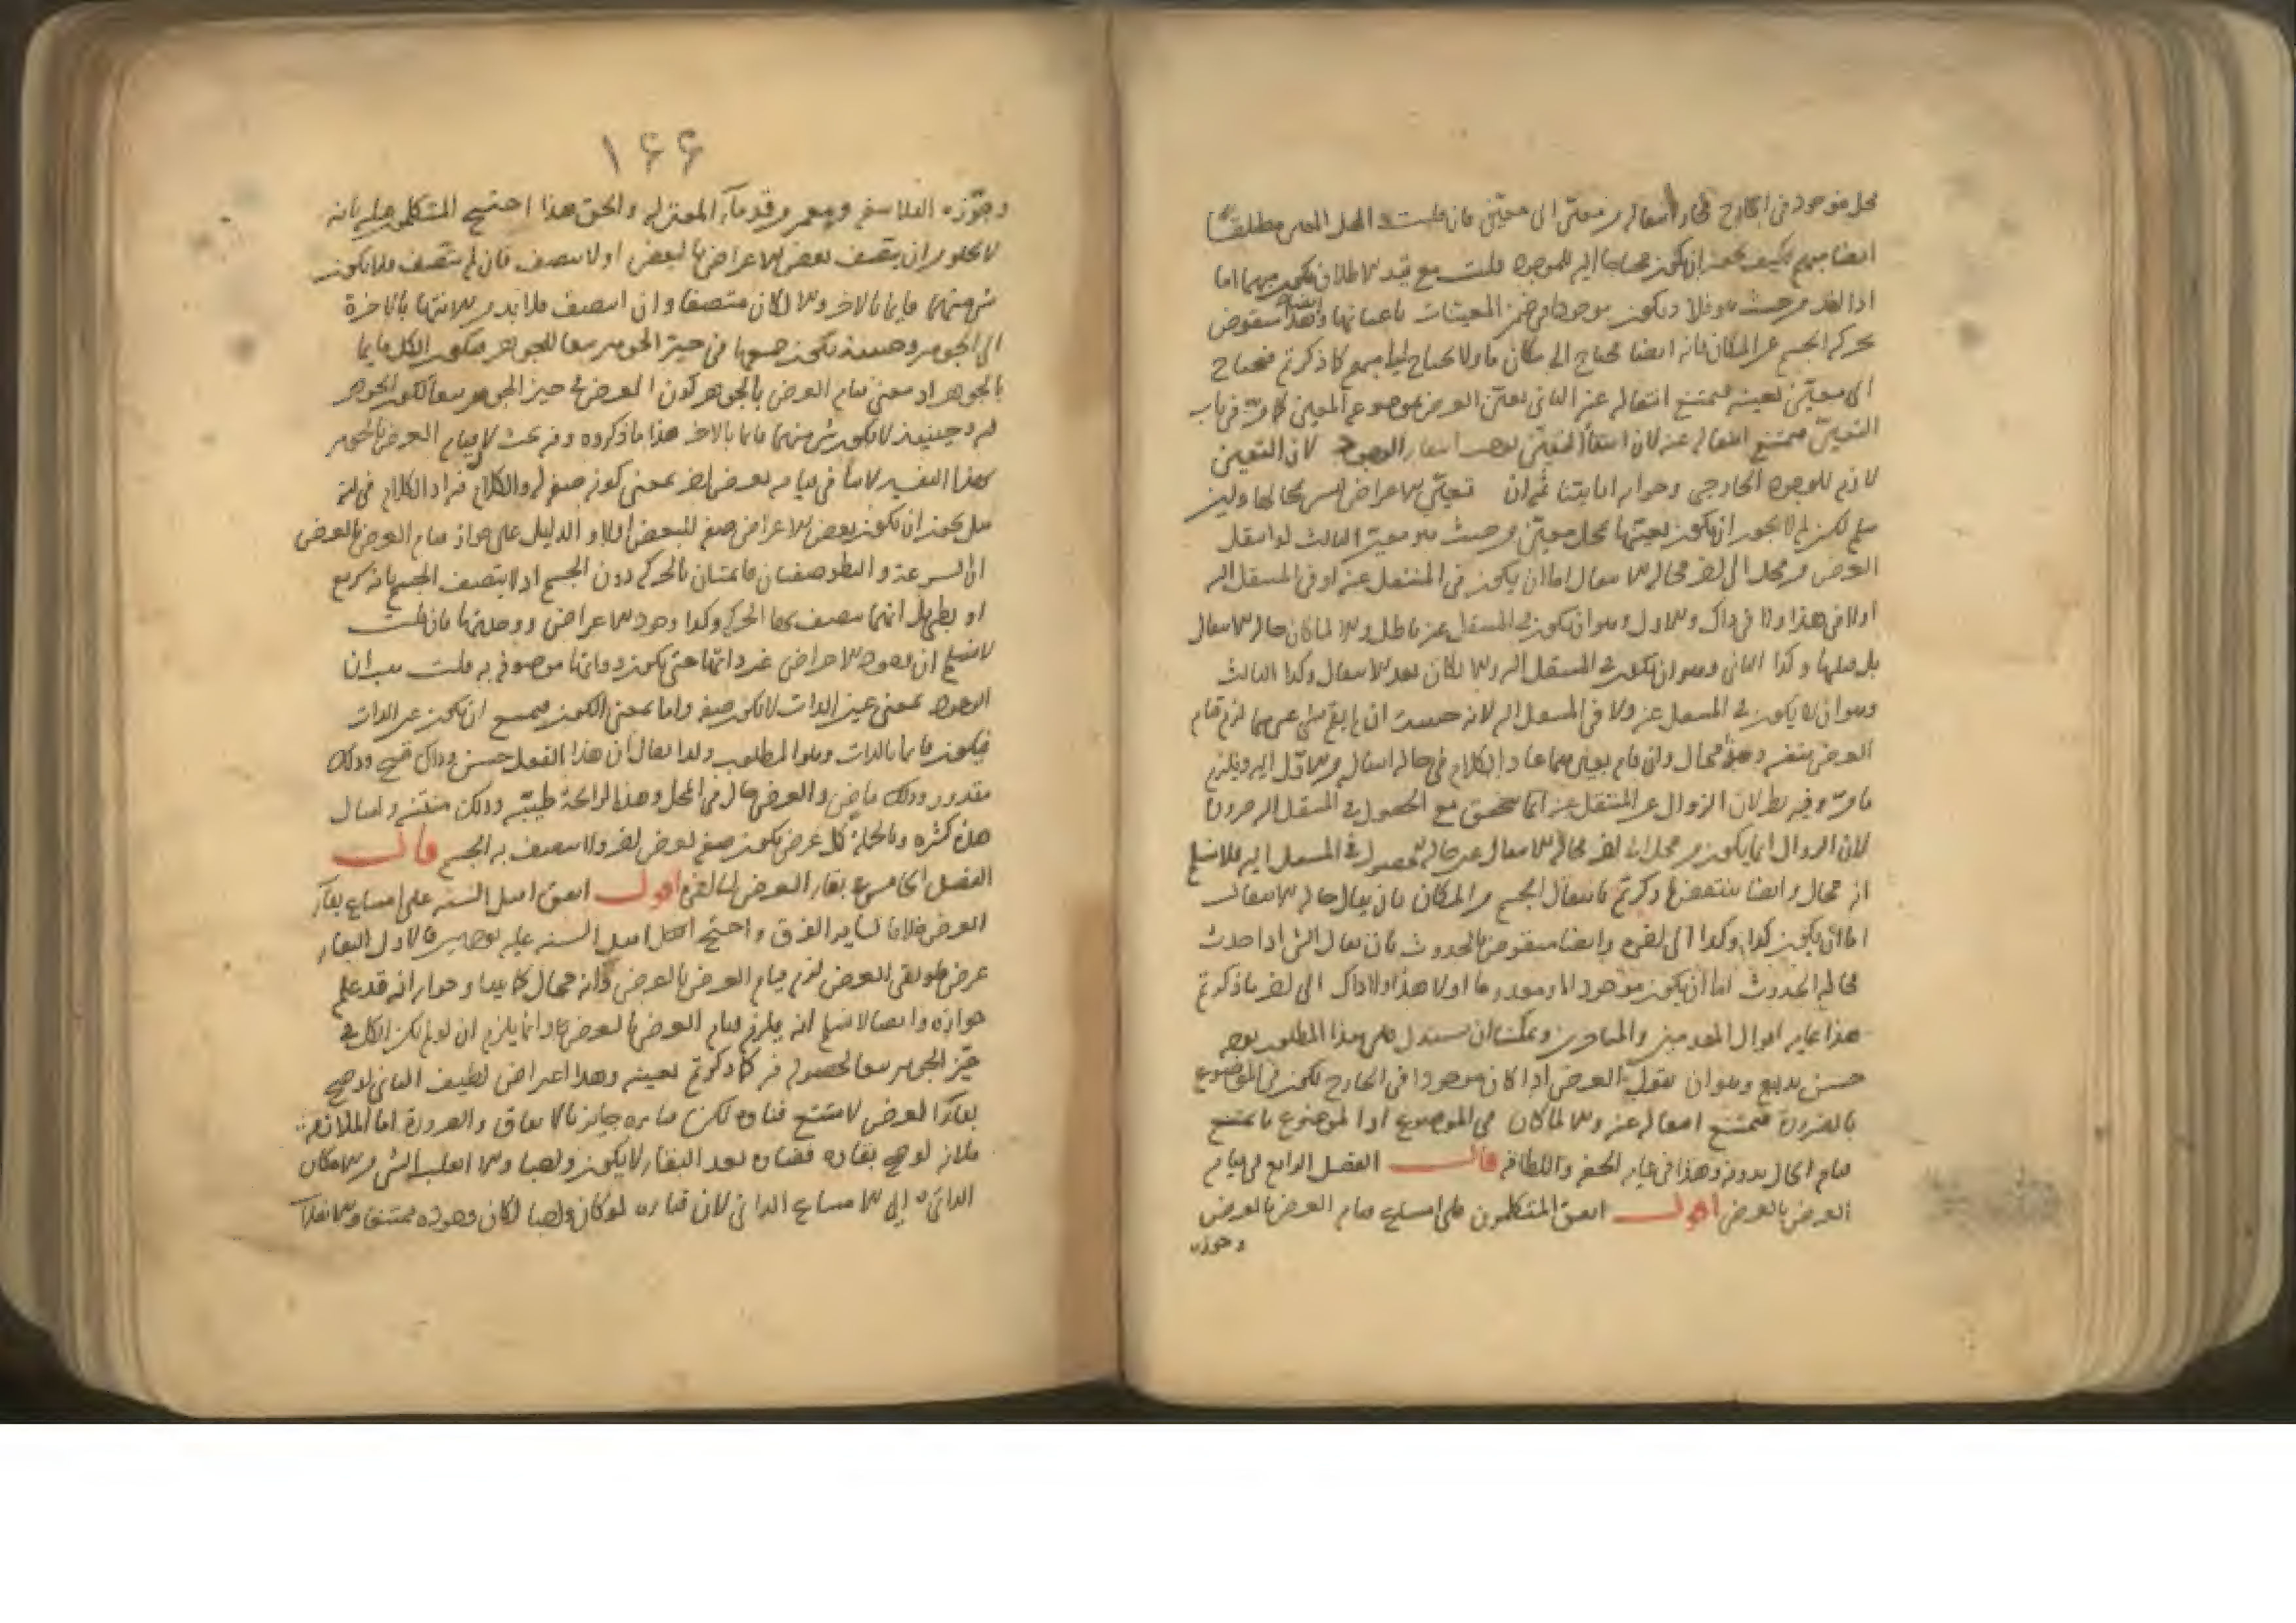 محل موجود فى الخارج فجاز انتقاله من معيّن الى معيّن فان قلت المحل المعين مطلقا
ايضا مبهم فكيف يجوز ان يكون محتاجا اليه للموجود قلت مع قيد الاطلاق يكون مبهما اما
اذا اخذ من حيث هو فلا ويكون موجودا فى ضمن المعينات باعيانها وايضا هذا منقوض
بحركة الجسم عن المكان فانه ايضا محتاج الى مكان ما ولا يحتاج الى مبهم كما ذكرتم فيحتاج
الى معيّن بعينه فيمتنع انتقاله عنه الثانى تعيّن العرض بموضوعه المعين كما مرّ فى باب
التعيّن فيمتنع انتقاله عنه لان انتفاء التعيّن يوجب انتفاء الوجود لان التعين
لازم للوجود الخارجى وجوابه انا بيّنا ثم ان تعيّن الاعراض ليس بمحالها ولئن
سلم لكن لم لا يجوز ان يكون تعينها بمحل معيّن من حيث هو معيّن الثالث لو انتقل
العرض من محل الى اخر فحالة الانتقال اما ان يكون فى المنتقل عنه او فى المنتقل اليه
اولا فى هذا ولا فى ذاك والاول وهو ان يكون فى المنتقل عنه باطل والا لما كان حالة الانتقال
بل قبلها وكذا الثانى وهو ان يكون فى المنتقل اليه والا لكان بعد الانتقال وكذا الثالث
وهو ان لا يكون فى المنتقل عنه ولا فى المنتقل اليه لانه حينئذ ان لم يقم بشئ غيرهما لزم قيام
العرض بنفسه وهو محال وان قام بغيرهما عاد الكلام فى حالة انتقاله من الاوّل اليه ويلزم
ما مرّ وفيه نظر لان الزوال عن المنتقل عنه انما يتحقق مع الحصول فى المنتقل اليه ضرورة
لان الزوال انما يكون من محل الى اخر فحالة الانتقال عين حالة الحصول فى المنتقل اليه فلا نسلم
انه محال وايضا ينتقض ما ذكرتم بانتقال الجسم من المكان بان يقال حالة الانتقال
اما ان يكون كذا وكذا الى اخره وايضا منقوض بالحدوث بان يقال الشئ اذا حدث
فحالة الحدوث اما ان يكون موجودا او معدوما او لا هذا ولا ذاك الى اخر ما ذكرتم
هذا غاية اقوال المتقدمين والمتاخرين ويمكننا ان نستدل على هذا المطلوب بوجه
حسن بديع وهو ان نقول العرض اذا كان موجودا فى الخارج يكون فى الموضوع
بالضرورة فيمتنع انتقاله عنه والا لما كان فى الموضوع اذا الموضوع ما يمتنع
قيام الحال بدونه وهذا فى غاية الحسن واللطافة قال الفصل الرابع فى قيام
العرض بالعرض اقول اتفق المتكلمون على امتناع قيام العرض بالعرض
وجوزه
١٦٦
وجوّزه الفلاسفة ومعمر وقدماء المعتزلة والحق هذا احتج المتكلمون عليه بانه
لا يخلو من ان يتصف بعض الاعراض بالبعض او لا يتصف فان لم يتصف فلا يكون
شئ منهما قايما بالاخر والا لكان متصفا وان اتصف فلا بد من الانتهاء بالاخرة
الى الجوهر وحينئذ يكون جميعها فى حيّز الجوهر تبعا للجوهر فيكون الكل قايما
بالجوهر اذ معنى قيام العرض بالجوهر كون العرض فى حيز الجوهر تبعا لكون الجوهر
فيه وحينئذ لا يكون شئ منهما قايما بالاخر هذا ما ذكروه وفيه بحث لان قيام العرض بالجوهر
بهذا التفسير لا ينافى قيامه بعرض اخر بمعنى كونه صفة له والكلام فيه اذ الكلام فى انه
هل يجوز ان يكون بعض الاعراض صفة للبعض ام لا والدليل على جواز قيام العرض بالعرض
ان السرعة والبطو صفتان قايمتان بالحركة دون الجسم اذ لا يتصف الجسم بانه سريع
او بطئ بل انما يتصف بهما الحركة وكذا وجود الاعراض ووحدتها فان قلت
لا نسلم ان وجود الاعراض غير ذاتها حتى يكون ذواتها موصوفة به قلت هب ان
الوجود بمعنى عين الذات لا يكون صفة واما بمعنى الكون فيمتنع ان يكون عين الذات
فيكون قايما بالذات وهو المطلوب ولذا يقال ان هذا الفعل حسن وذاك قبيح وذلك
مقدور وذلك ماض والعرض حال فى المحل وهذه الرائحة طيّبة وتلك منتنة وامثال
هذه كثيرة وبالجملة كل عرض يكون صفة لعرض اخر ولا يتصف به الجسم قال
الفصل الخامس فى بقاء العرض الى اخره اقول اتفق اهل السنة على امتناع بقاء
العرض خلافا لسائر الفرق واحتج اهل السنة عليه بوجهين الاول البقاء
عرض فلو بقى العرض لزم قيام العرض بالعرض وانه محال كما بينا وجوابه انه قد علم
جوازه وايضا لا نسلم انه يلزم قيام العرض بالعرض وانما يلزم ان لو لم يكن الكل فى
حيّز الجوهر تبعا لحصوله فيه كما ذكرتم بعينه وهذا اعتراض لطيف الثانى لو صح
بقاء العرض لامتنع فناؤه لكن فناءه جايز بالاتفاق والضرورة اما الملازمة
فلانه لو صح بقاؤه ففناؤه بعد البقاء لا يكون واجبا والا انقلب الشئ من الامكان
الذاتى الى الامتناع الذاتى لان فناءه لو كان واجبا لكان وجوده ممتنعا والانقلاب